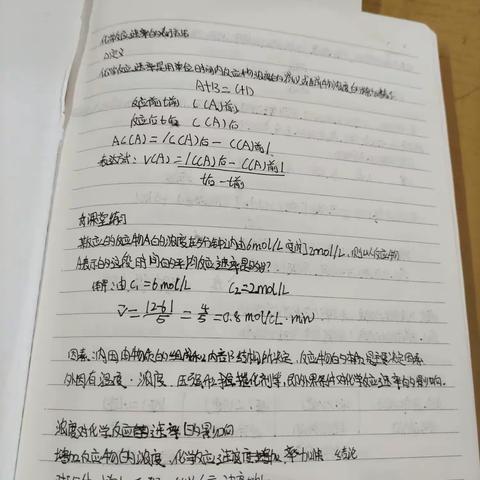 化学反应速率的表示方法
1.定义
化学反应速率是用单位时间内反应物浓度的减少或生成物浓度的增加来表示
A+B=C+D
反应前t前 C(A)前
反应后t后 C(A)后
△C(A)=|C(A)后-C(A)前|
表达式:V(A)=|C(A)后-C(A)前|
t后-t前
课堂练习
某反应的反应物A的浓度在5分钟内由6mol/L变到2mol/L,则以反应物
A表示的这段时间的平均反应速率是多少?
解:由C₁=6mol/L C₂=2mol/L
V̄=|2-6|/5=4/5=0.8mol/(L·min).
因素:内因由物质的组成和内容及结构所决定,反应物的是主要决定因素
外因有温度、浓度、压强和催化剂等,即外界条件对化学反应速率的影响.
浓度对化学反应速率的影响
增加反应物的浓度,化学反应速率加快 结论